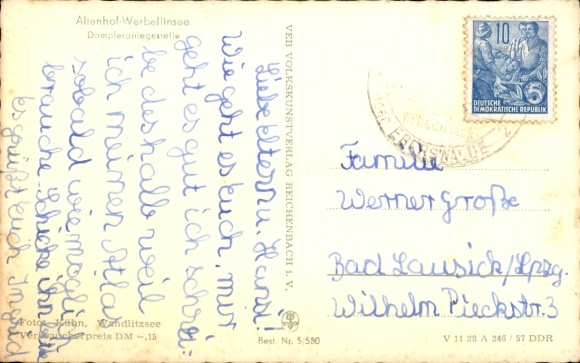 Altenhof-Werbellinsee
Dampferanlegestelle
Liebe Eltern u. Hansi!
Wie geht es Euch, mir
geht es gut ich schrei-
be deshalb weil
ich meinen Atlas
sobald wie möglich
brauche. Schicke ihn
Es grüßt Euch
Foto: Kühn, Wandlitzsee
Verbraucherpreis DM -,15
VEB VOLKSKUNSTVERLAG REICHENBACH i. V.
Best. Nr. 5/580
10
DEUTSCHE
DEMOKRATISCHE REPUBLIK
5
EBERSWALDE
Familie
Werner Große
Bad Lausick/Lpzg.
Wilhelm Pieckstr. 3
V 11 23 A 246 / 57 DDR